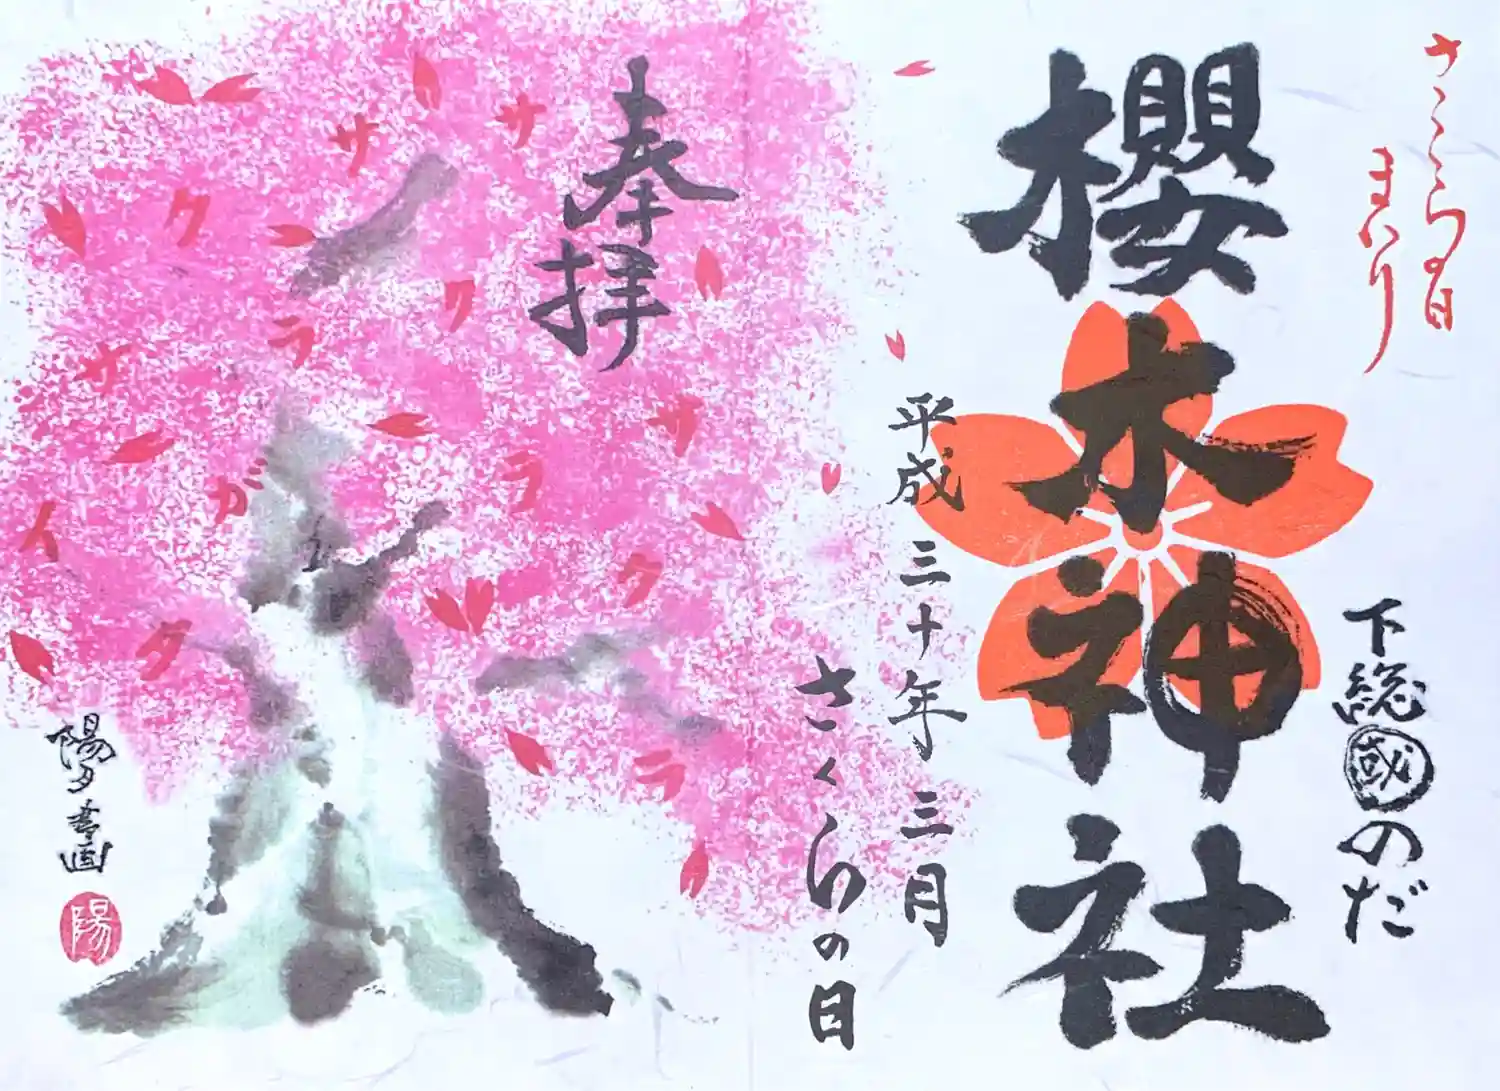 さくらの日
まいり
下総國のだ
櫻木神社
平成三十年三月
さくらの日
奉拝
サクラ
サクラ
サクラガ
サイタ
陽